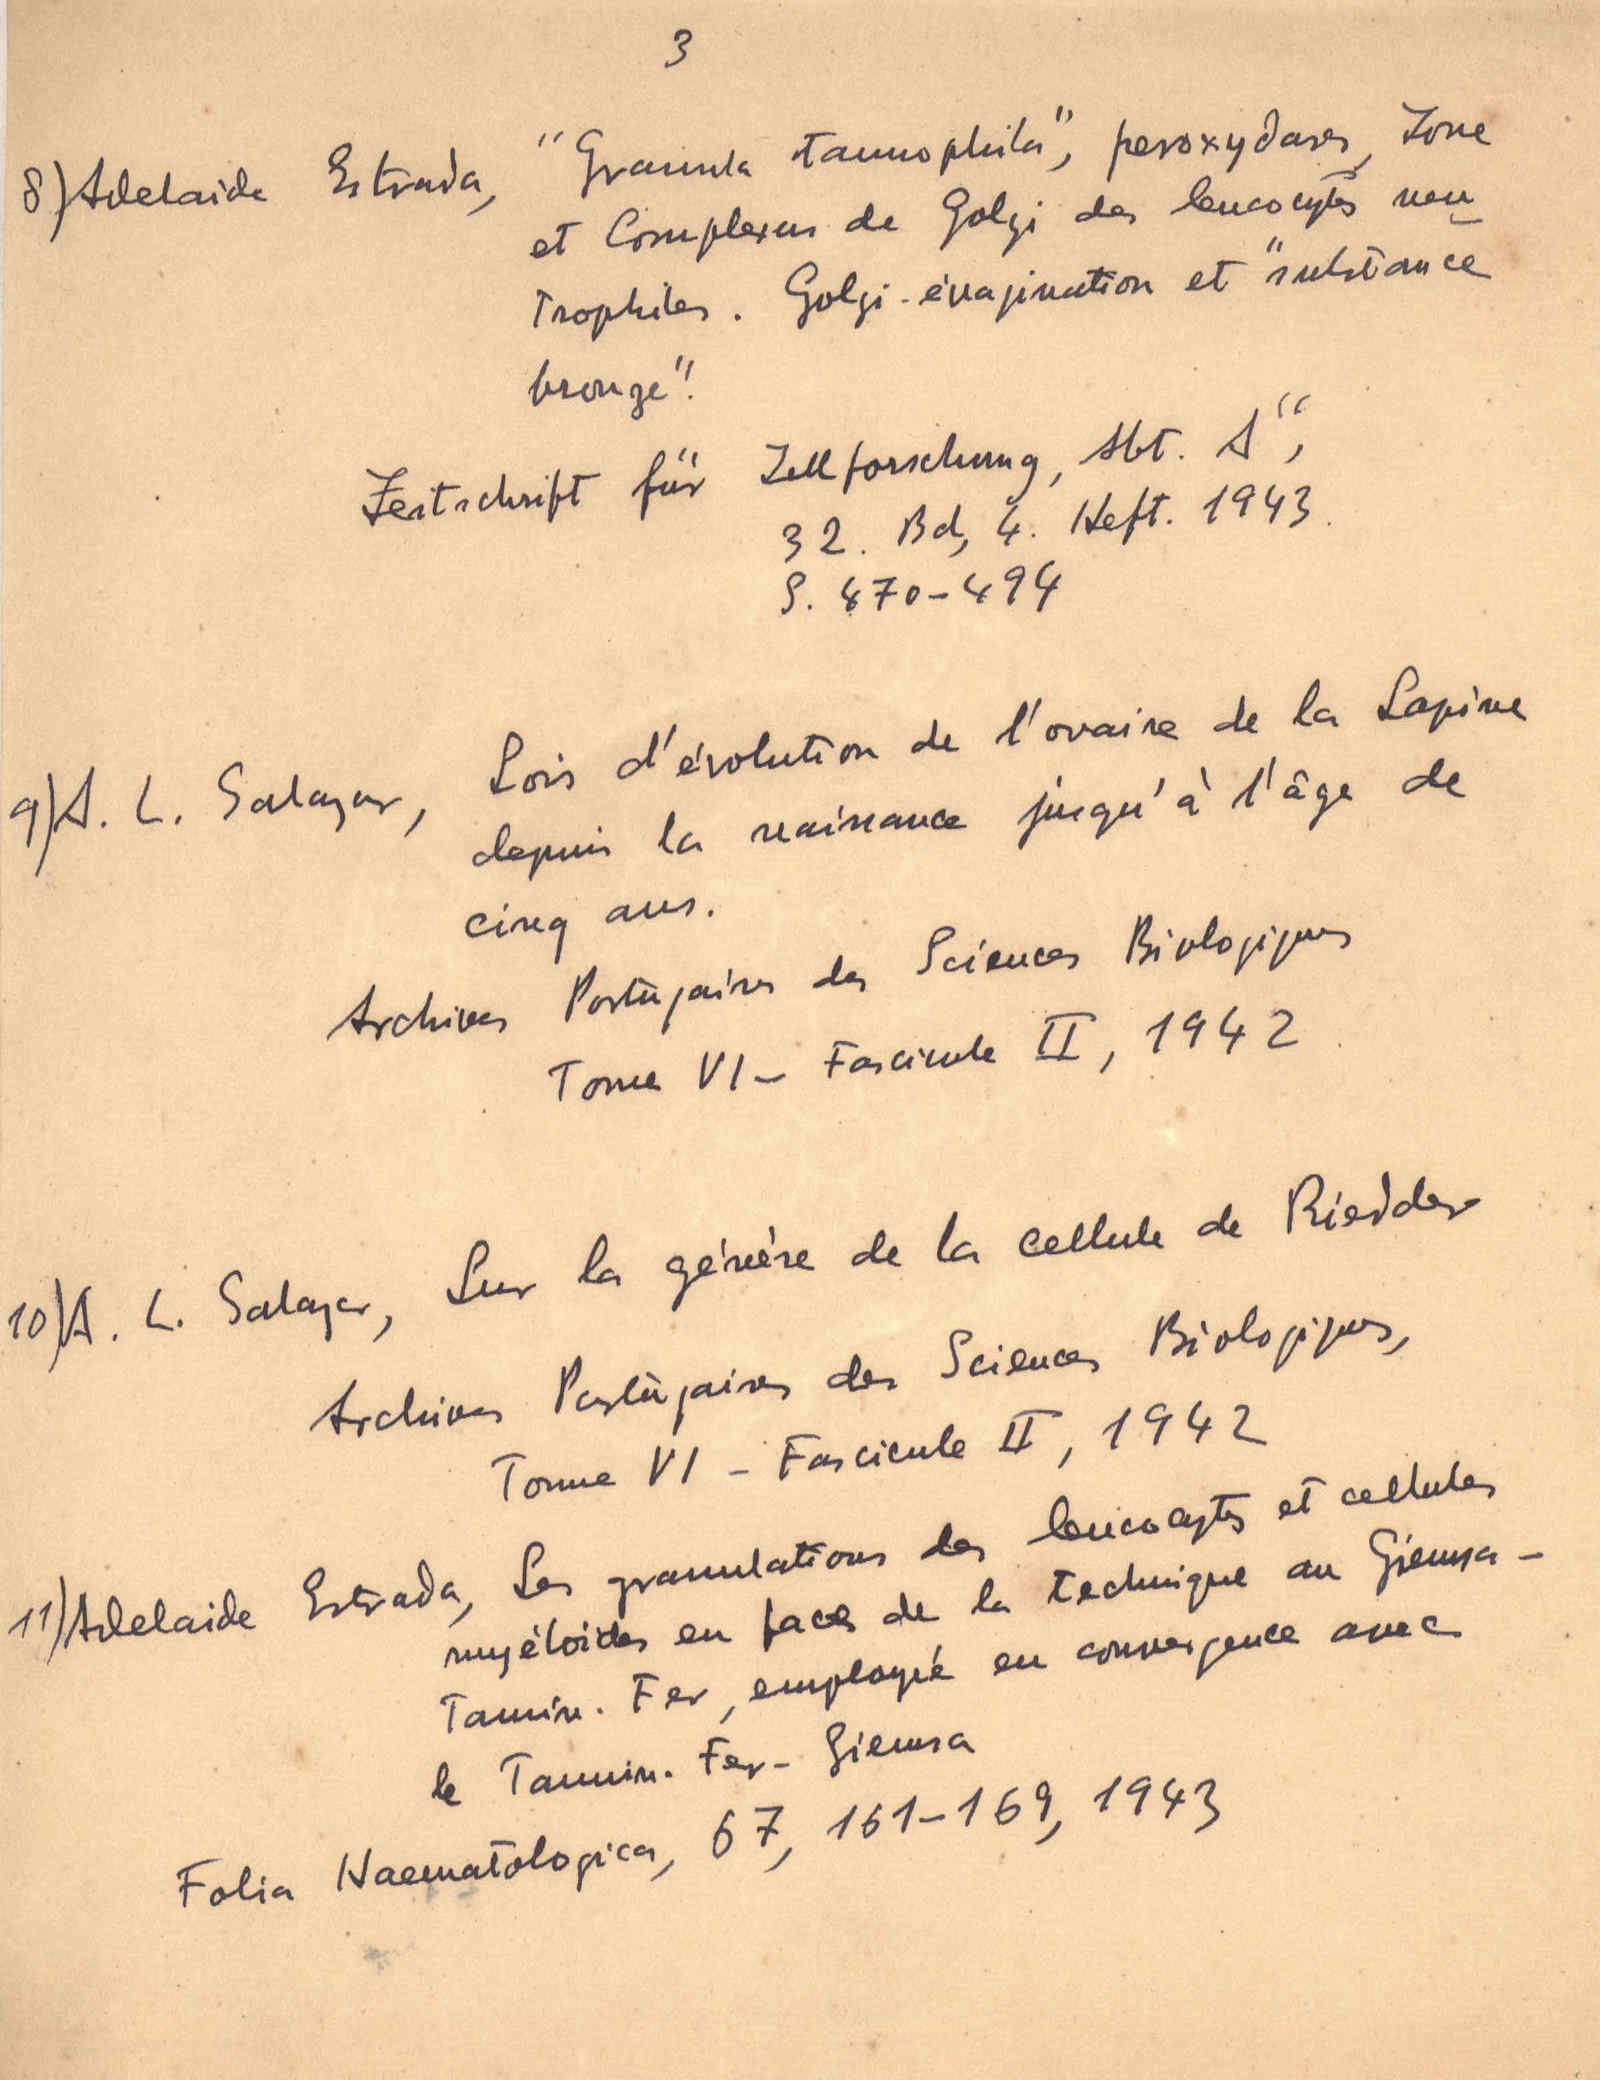 3
8) Adelaide Estrada, "Granula tannophila", peroxydases, Zone
et Complexus de Golgi des leucocytes neu-
trophiles. Golgi-évagination et "substance
bronze".
Zeitschrift für Zellforschung, Abt. A",
32. Bd, 4. Heft. 1943.
S. 470-494
9) A. L. Salazar, Lois d'évolution de l'ovaire de la Lapine
depuis la naissance jusqu'à l'âge de
cinq ans.
Archives Portugaises des Sciences Biologiques
Tome VI - Fascicule II, 1942.
10) A. L. Salazar, Sur la génèse de la cellule de Riedder
Archives Portugaises des Sciences Biologiques,
Tome VI - Fascicule II, 1942
11) Adelaide Estrada, Les granulations des leucocytes et cellules
myéloides en face de la technique au Giemsa -
Tannin. Fer, employé en convergence avec
le Tannin. Fer - Giemsa
Folia Haematologica, 67, 161-169, 1943